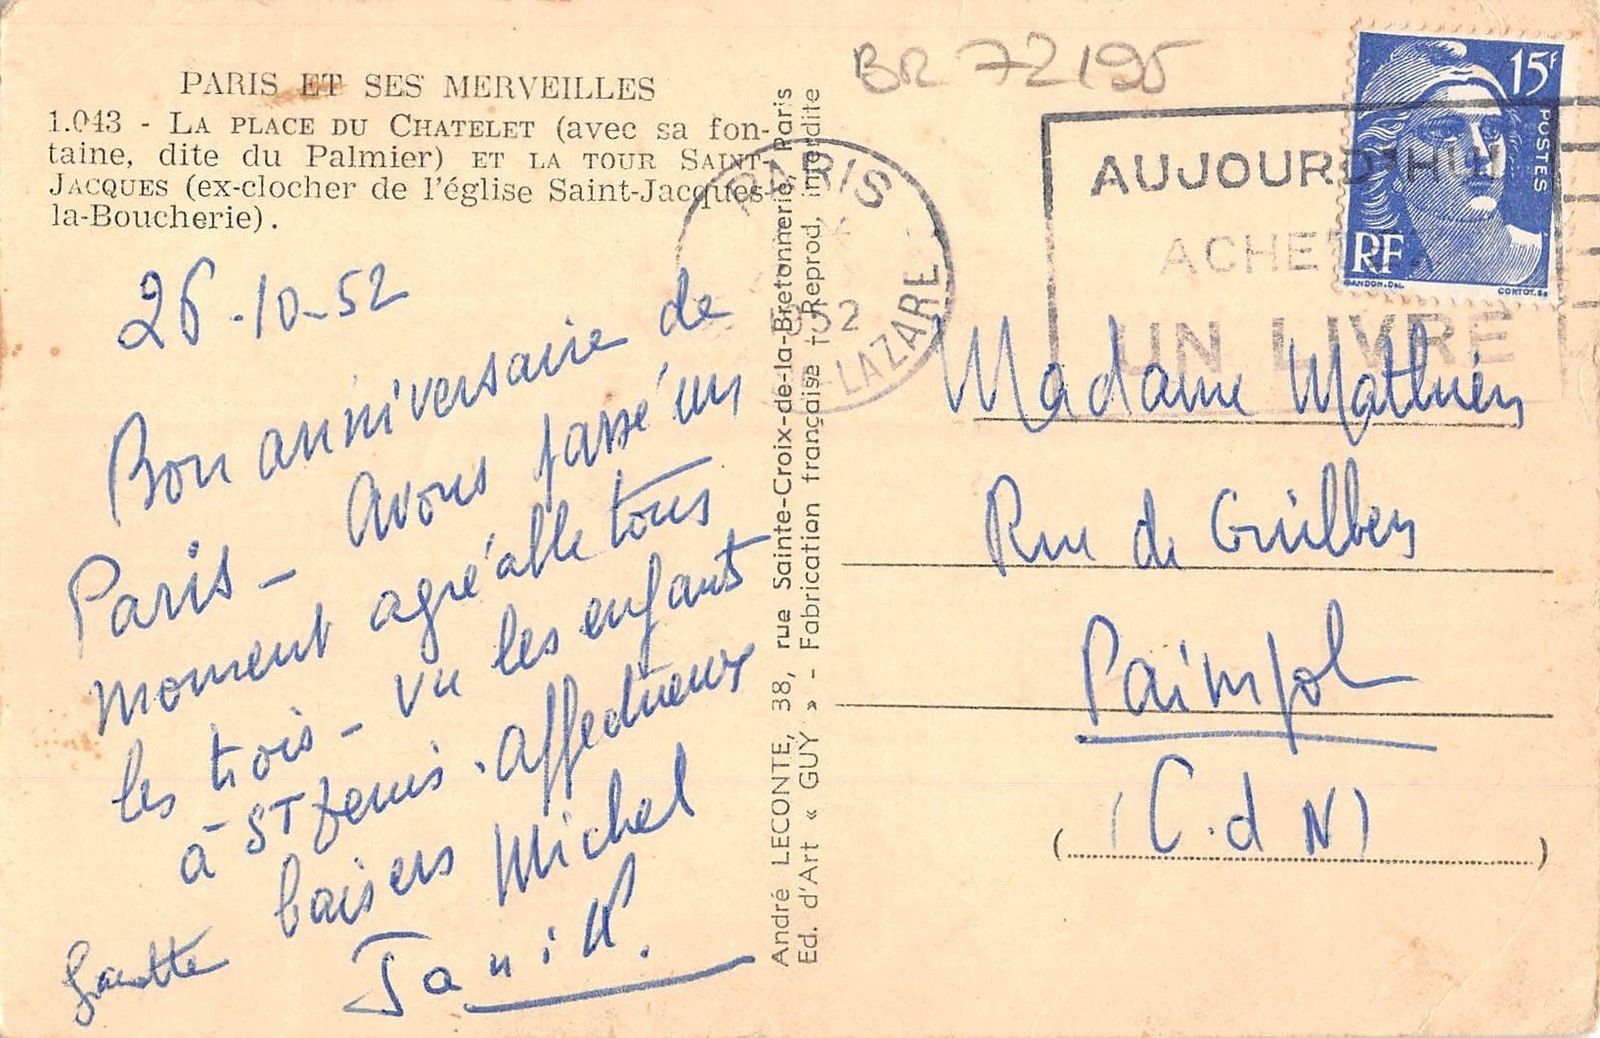 BR 72195
PARIS ET SES MERVEILLES
1.043 - LA PLACE DU CHATELET (avec sa fon-
taine, dite du Palmier) ET LA TOUR SAINT-
JACQUES (ex-clocher de l'église Saint-Jacques-
la-Boucherie).
26-10-52
Bon anniversaire de
Paris - avons passé un
moment agréable tous
les trois - vu les enfants
à St Denis. Affectueux
baisers Michel
André LECONTE, 38, rue Sainte-Croix-de-la-Bretonnerie, Paris
Ed. d'Art « GUY » - Fabrication française - Reprod. interdite
PARIS
952
LAZARE
AUJOURD'HUI
ACHETEZ
UN LIVRE
15F
POSTES
RF
GANDON.DEL.
CORTOT.SC
Madame
Rue de
Paimpol
(C.d N)